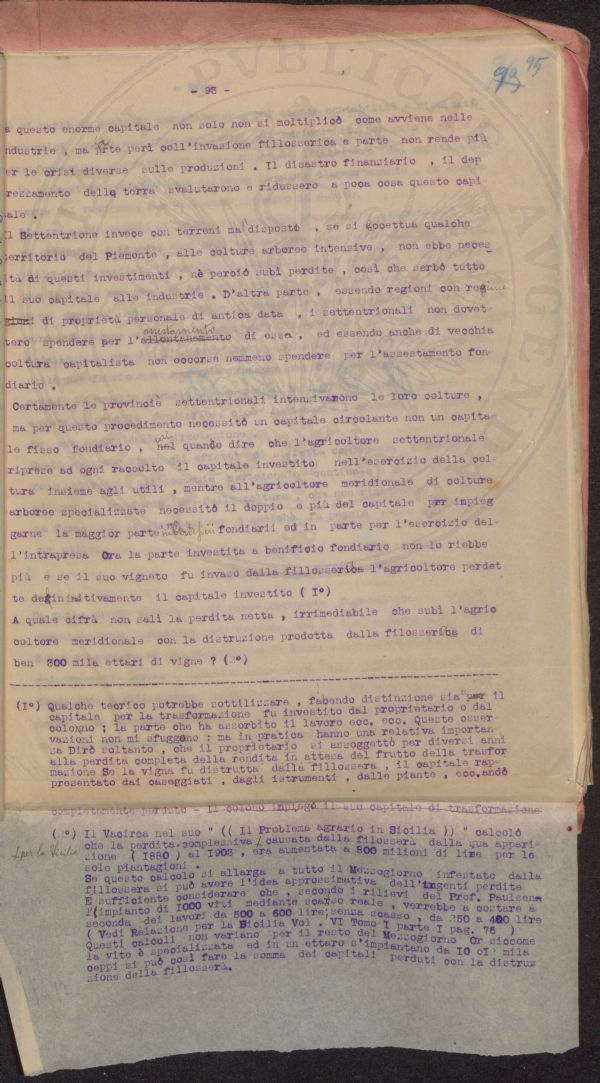 93 95
- 93 -
a questo enorme capitale non solo non si moltiplicò come avviene nelle
ndustrie , ma parte perì coll'invasione fillosserica e parte non rende più
er le crisi diverse sulle produzioni . Il disastro finanziario , il dep
rezzamento della terra svalutarono e ridussero a poca cosa questo capi
ale .
l Settentrione invece con terreni mal disposto , se si accettua qualche
territorio del Piemonte , alle colture arboree intensive , non ebbe neces_
ità di questi investimenti , nè perciò subì perdite , così che serbò tutto
il suo capitale alle industrie . D'altra parte , essendo regioni con regime
gioni di proprietà personale di antica data , i settentrionali non dovet-
assestamento
tero spendere per l'allontanamento di essa , ed essendo anche di vecchia
coltura capitalista non occorse nemmeno spendere per l'assestamento fon
diario .
Certamente le provincie settentrionali intensivarono le loro colture ,
ma per questo procedimento necessitò un capitale circolante non un capita-
le fisso fondiario , val quando dire che l'agricoltore settentrionale
riprese ad ogni raccolto il capitale investito nell'esercizio della col-
tura insieme agli utili , mentre all'agricoltore meridionale di colture
arboree specializzate necessitò il doppio e più del capitale per impieg
garne la maggior parte in fondiarii ed in parte per l'esercizio del-
l'intrapresa Ora la parte investita a benificio fondiario non lo riebbe
più e se il suo vigneto fu invaso dalla fillosserica l'agricoltore perdet
te deginitivamente il capitale investito ( I°)
A quale cifra non salì la perdita netta , irrimediabile che subì l'agric
coltore meridionale con la distruzione prodotta dalla filosserica di
ben 300 mila ettari di vigne ? (2°)
(I°) Qualche teorico potrebbe sottilizzare , facendo distinzione sia per il
capitale per la trasformazione fu investito dal proprietario o dal
colonno ; la parte che ha assorbito il lavoro ecc. ecc. Queste osser-
vazioni non mi sfuggono : ma in pratica hanno una relativa importan-
za Dirò soltanto , che il proprietario si assoggettò per diversi anni
alla perdita completa della rendita in attesa del frutto della trasfor
mazione Se la vigna fu distrutta dalla fillossera , il capitale rap-
presentato dai caseggiati , dagli istrumenti , dalle piante , ecc.andò
completamente perduto - Il colono impiegò il suo capitale di trasformazione
(2°) Il Vacirca nel suo " (( Il Problema agrario in Sicilia )) " calcolò
per la Sicilia
che la perdita complessiva causata dalla filosserà dalla qua appari-
zione ( I880 ) al I903 , era aumentata a 800 milioni di lire per le
sole piantagioni .
Se questo calcolo si allarga a tutto il Mezzogiorno infestato dalla
fillossera si può avere l'idea approssimativa dell'ingenti perdite
E sufficiente considerare che , secondo i rilievi del Prof. Paulsena
l'impianto di I000 viti mediante scasso reale , verrebbe a costare a
seconda dei lavori da 500 a 600 lire;senza scasso , da 250 a 400 lire
( Vedi Relazione per la Sicilia Vol . VI Tomo I parte I pag. 76 )
Questi calcoli non variano per il resto del Mezzogiorno Or siccome
la vite è specializzata ed in un ettaro s'impiantano da I0 oI2 mila
ceppi si può così fare la somma dei capitali perduti con la distruz
zione della fillosserà.